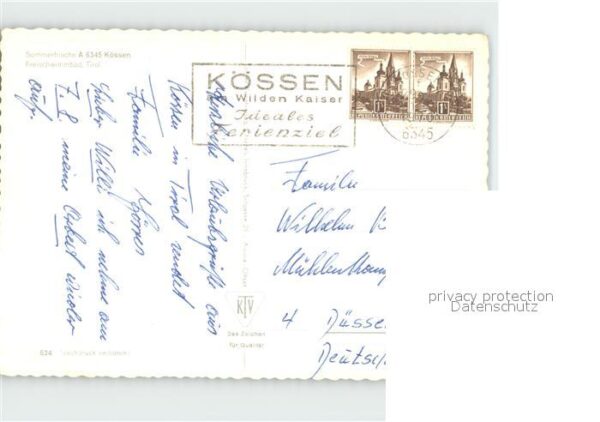 Sommerfrische A 6345 Kössen
Freischwimmbad, Tirol
KÖSSEN
Wilden Kaiser
Ideales
Ferienziel
6345
Herzliche Urlaubsgrüße aus
Kössen in Tirol sendet
Familie Görres
Lieber Willi ich nehme am
7.8. meine Arbeit wieder
auf.
Familie
Wilhelm
4 Düsse
Deutsch
KTV
Das Zeichen
für Qualität
624
privacy protection
Datenschutz